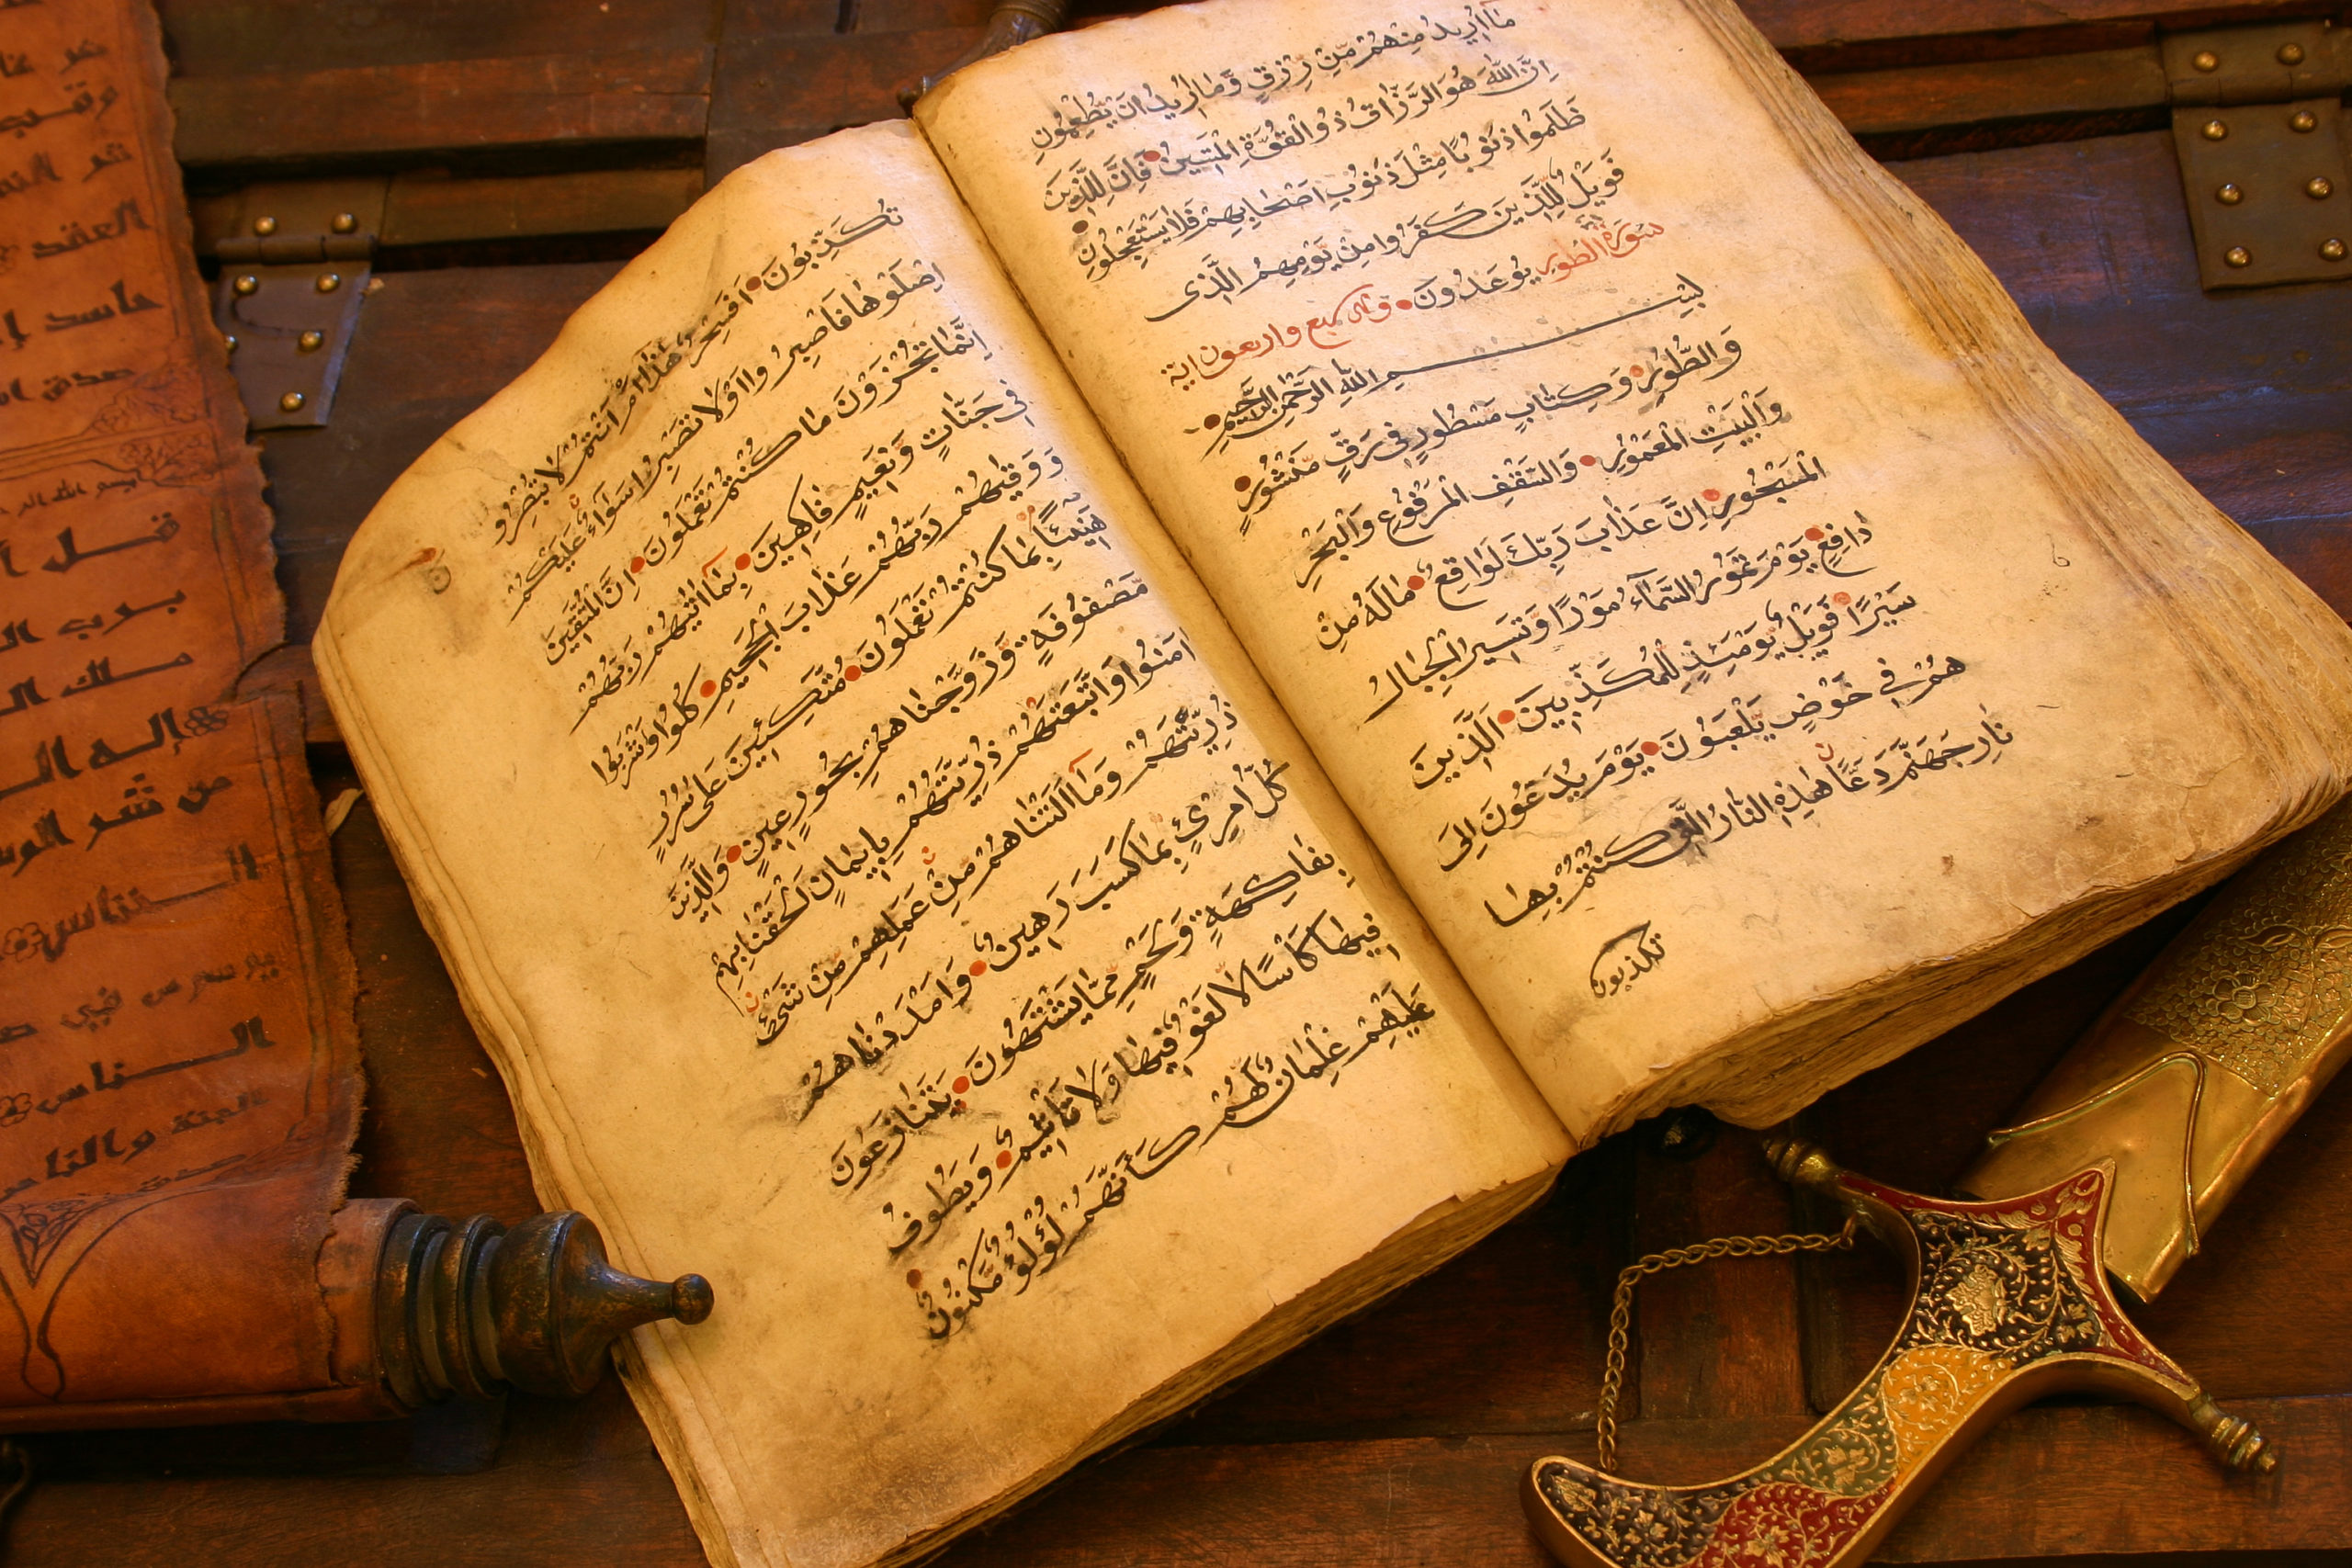 مَا اُرِيدُ مِنْهُمْ مِّنْ رِّزْقٍ وَّمَا اُرِيدُ اَنْ يُّطْعِمُونِ
اِنَّ اللّٰهَ هُوَ الرَّزَّاقُ ذُو الْقُوَّةِ الْمَتِينُ فَاِنَّ لِلَّذِينَ
ظَلَمُوا ذَنُوبًا مِثْلَ ذَنُوبِ اَصْحَابِهِمْ فَلَا يَسْتَعْجِلُونِ
فَوَيْلٌ لِلَّذِينَ كَفَرُوا مِنْ يَّوْمِهِمُ الَّذِى
يُوعَدُونَ سورة الطور
واربعون اية
بسم الله الرحمن الرحيم
وَالطُّوْرِ وَكِتَابٍ مَسْطُورٍ فِى رَقٍّ مَنْشُورٍ
وَالْبَيْتِ الْمَعْمُوْرِ وَالسَّقْفِ الْمَرْفُوْعِ وَالْبَحْرِ
الْمَسْجُورِ اِنَّ عَذَابَ رَبِّكَ لَوَاقِعٌ مَالَهُ مِنْ
دَافِعٍ يَوْمَ تَمُوْرُ السَّمَآءُ مَوْرًا وَّتَسِيْرُ الْجِبَالُ
سَيْرًا فَوَيْلٌ يَوْمَئِذٍ لِلْمُكَذِّبِينَ اَلَّذِينَ
هُمْ فِى خَوْضٍ يَلْعَبُوْنَ يَوْمَ يُدَعُّونَ اِلَى
نَارِ جَهَنَّمَ دَعًّا هٰذِهِ النَّارُ الَّتِى كُنْتُمْ بِهَا
تكذبون
تُكَذِّبُونَ اَفَسِحْرٌ هٰذَا اَمْ اَنْتُمْ لَا تُبْصِرُو
ن
اِصْلَوْهَا فَاصْبِرُوا اَوْلَا تَصْبِرُوا سَوَآءٌ عَلَيْكُمْ
اِنَّمَا تُجْزَوْنَ مَا كُنْتُمْ تَعْمَلُونَ اِنَّ الْمُتَّقِينَ
فِى جَنَّاتٍ وَّنَعِيْمٍ فَاكِهِينَ بِمَا اٰتٰيهُمْ رَبُّهُمْ
وَوَقٰيهُمْ رَبُّهُمْ عَذَابَ الْجَحِيمِ كُلُوا وَشْرَبُوا
هَنِيْئًا بِمَا كُنْتُمْ تَعْمَلُونَ مُتَّكِئِينَ عَلَى سُرُرٍ
مَصْفُوْفَةٍ وَزَوَّجْنَاهُمْ بِحُوْرٍ عِيْنٍ وَالَّذِينَ
اٰمَنُوا وَاتَّبَعَتْهُمْ ذُرِّيَّتُهُمْ بِاِيْمَانٍ اَلْحَقْنَا بِهِمْ
ذُرِّيَّتَهُمْ وَمَآ اَلَتْنَاهُمْ مِّنْ عَمَلِهِمْ مِّنْ شَىْءٍ
كُلُّ امْرِئٍ بِمَا كَسَبَ رَهِيْنٌ وَاَمْدَدْنَاهُمْ
بِفَاكِهَةٍ وَّلَحْمٍ مِمَّا يَشْتَهُونَ يَتَنَازَعُونَ
فِيْهَا كَاْسًا لَا لَغْوٌ فِيْهَا وَلَا تَاْثِيْمٌ وَيَطُوْفُ
عَلَيْهِمْ غِلْمَانٌ لَّهُمْ كَاَنَّهُمْ لُؤْلُؤٌ مَّكْنُوْنٌ
العقد
حاسد
قل
برب
ملك
إله
من شر
الناس
الناس